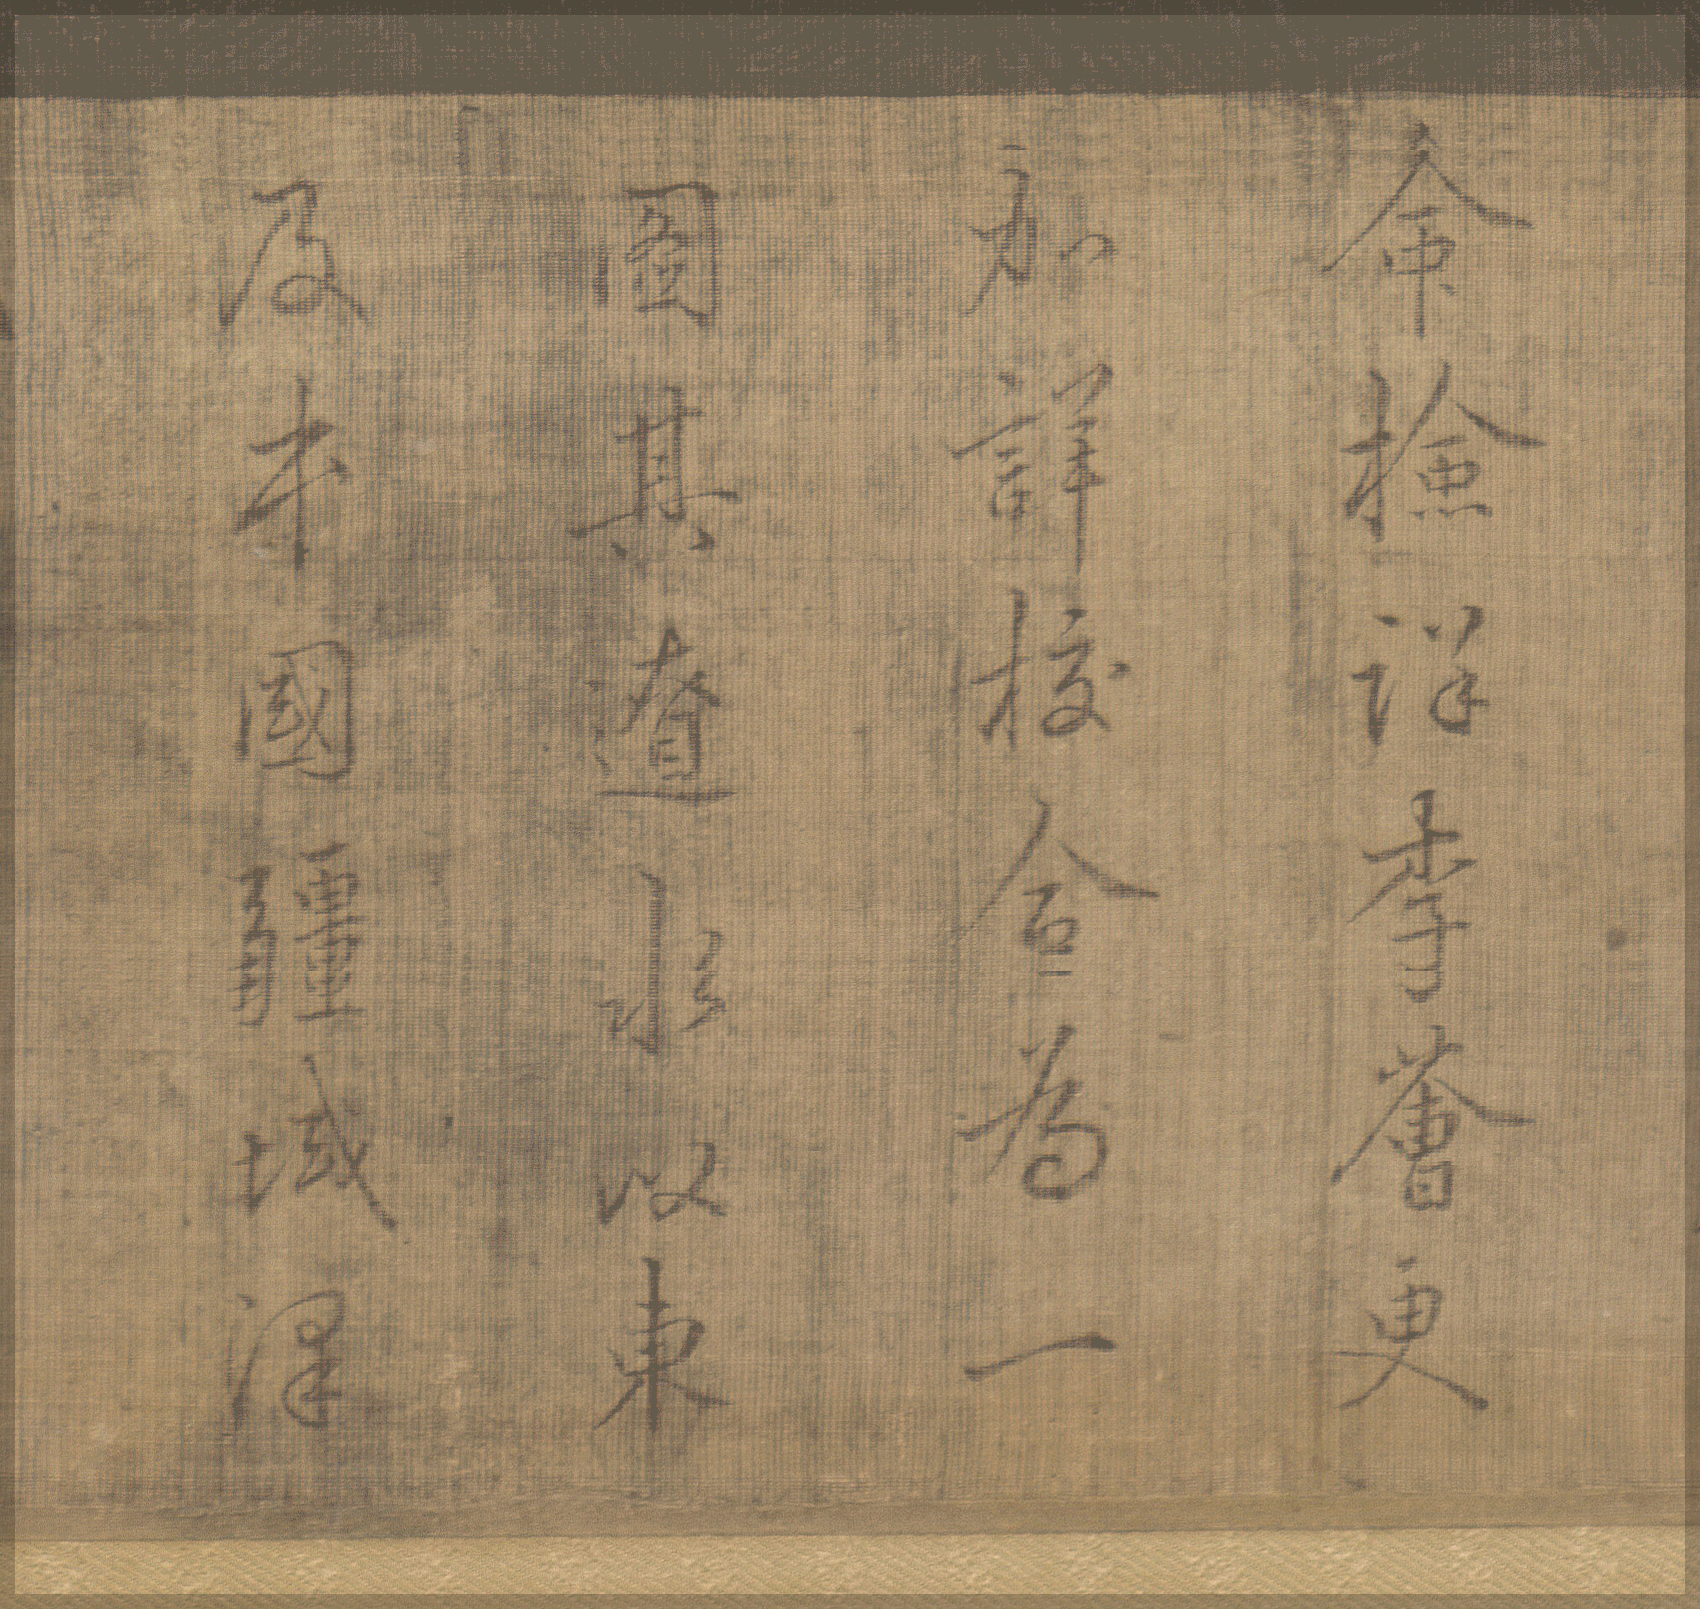 命檢詳李薈更
加詳校合為一
圖其遼水以東
及本國疆域澤